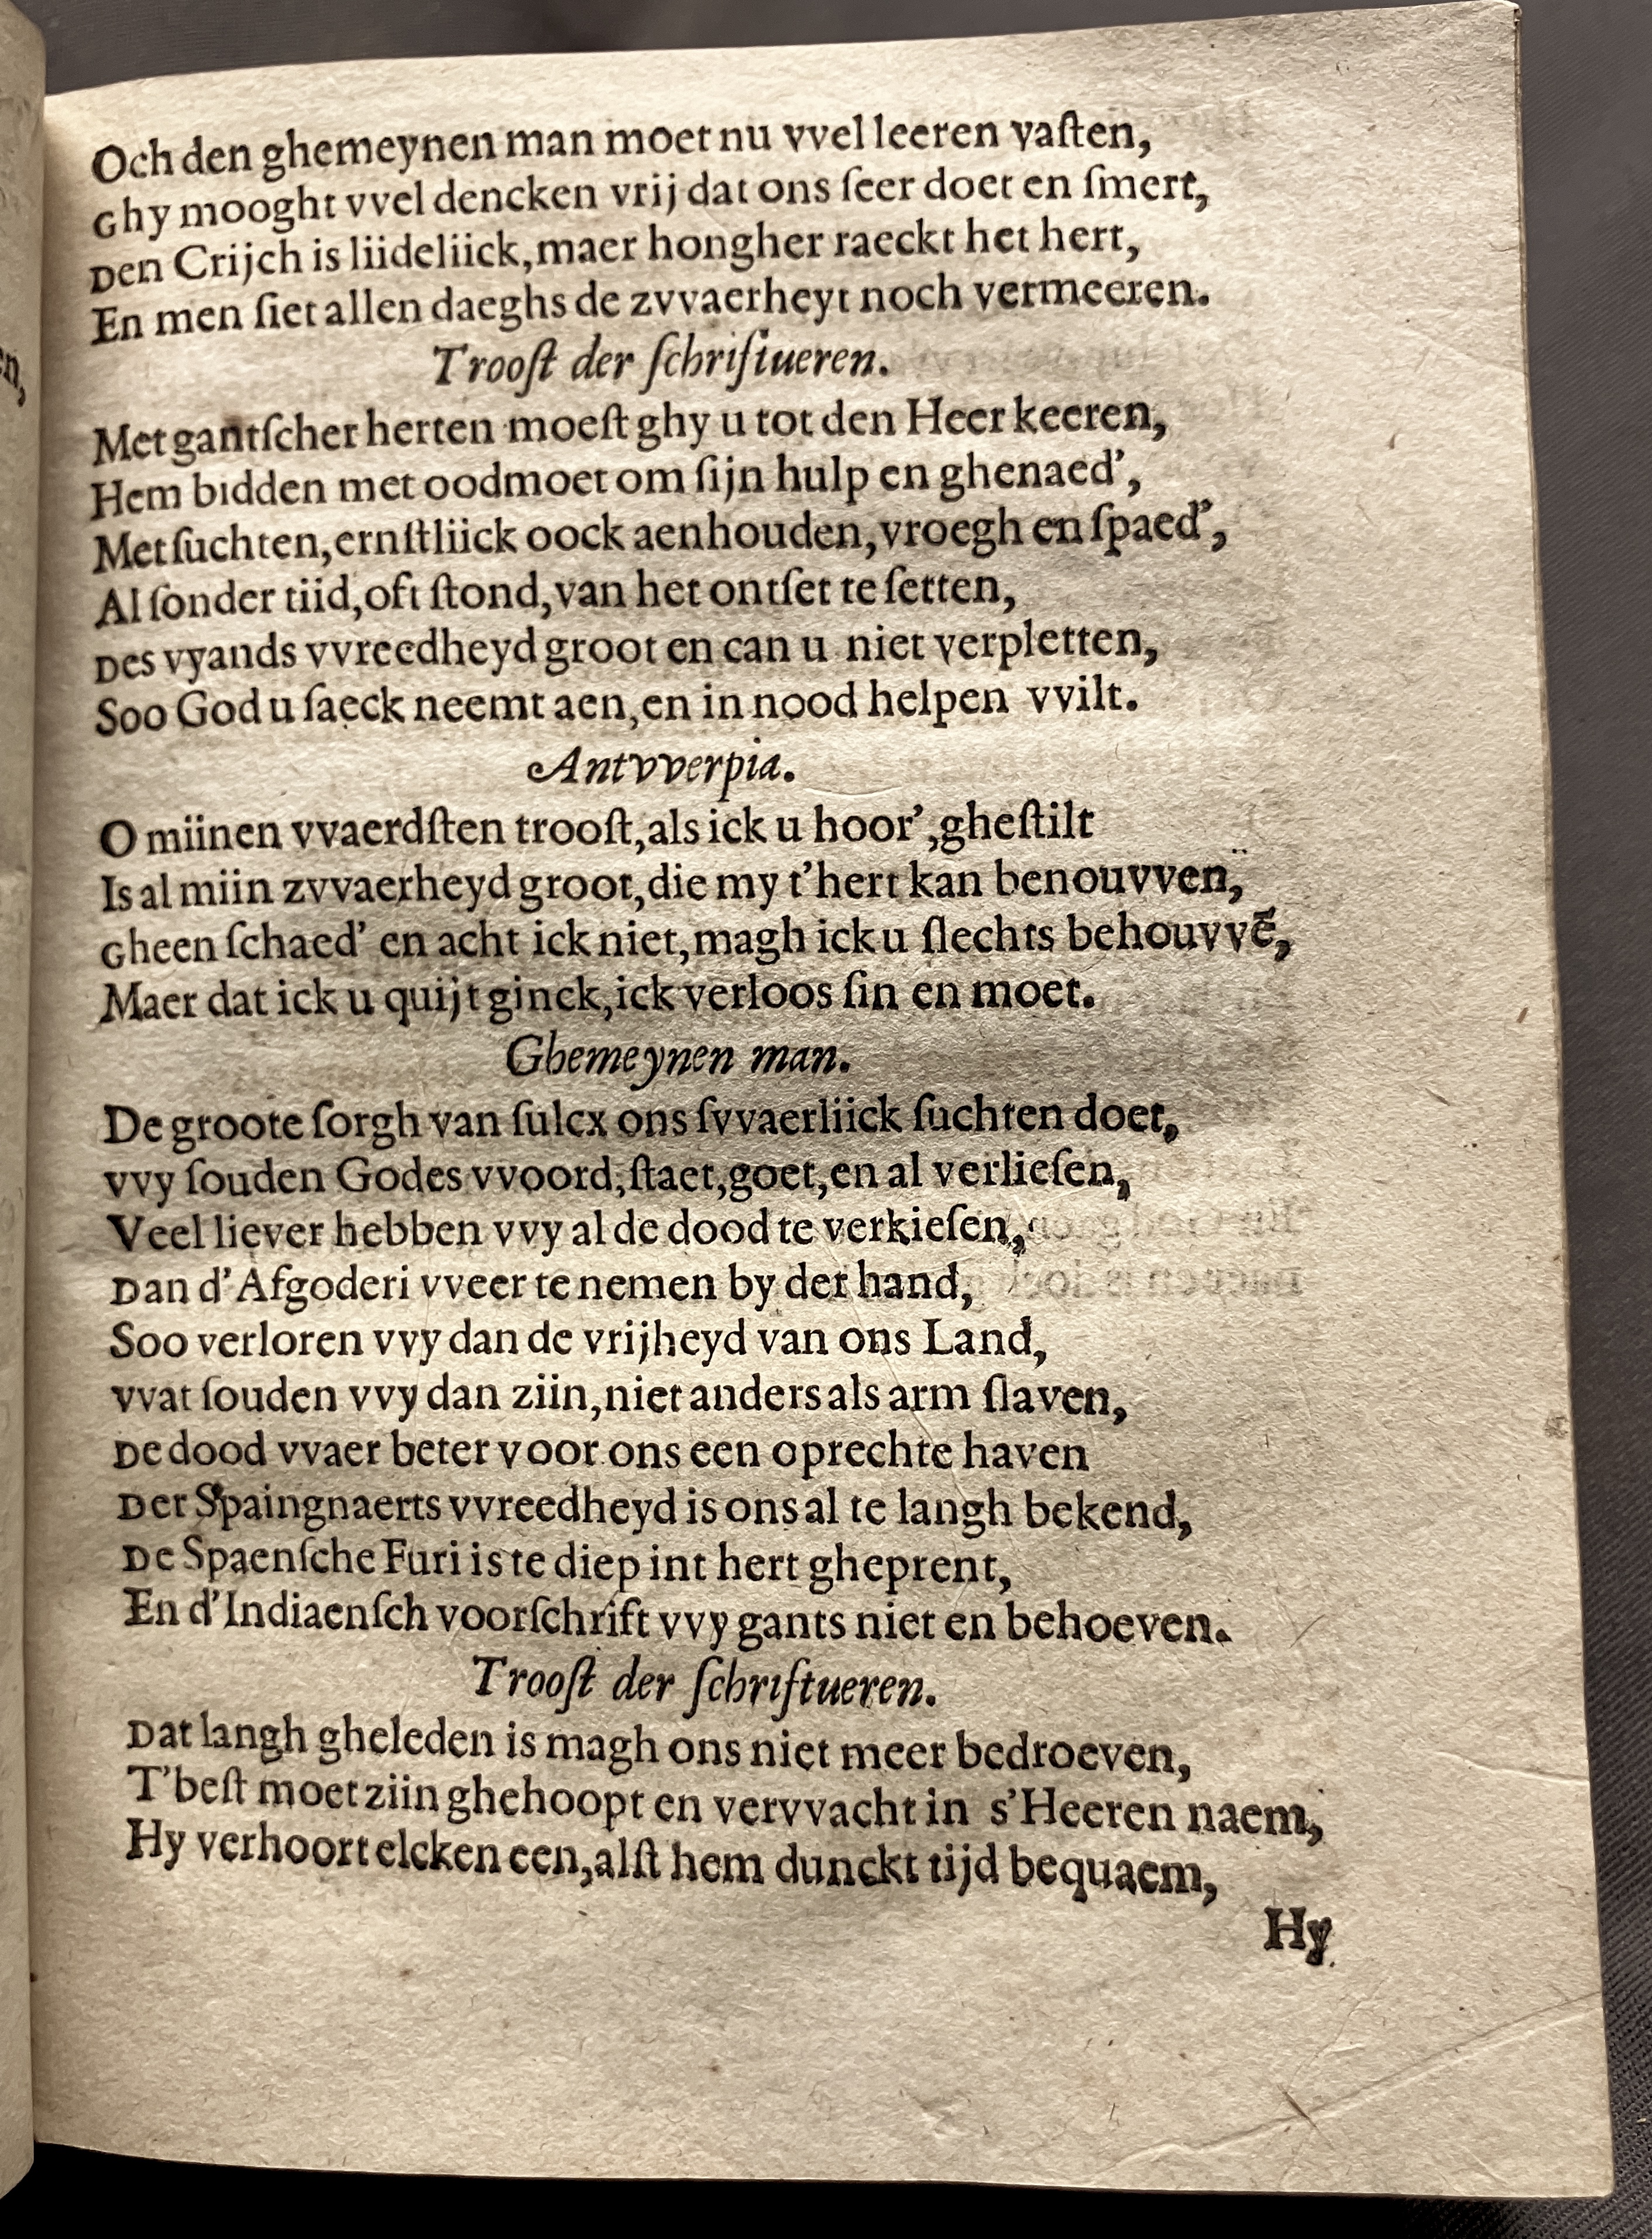 Och den ghemeynen man moet nu vvel leeren vaſten,
Ghy mooght vvel dencken vrij dat ons ſeer doet en ſmert,
Den Crijch is liideliick, maer hongher raeckt het hert,
En men ſiet allen daeghs de zvvaerheyt noch vermeeren.
Trooſt der ſchriftueren.
Met gantſcher herten moeſt ghy u tot den Heer keeren,
Hem bidden met oodmoet om ſijn hulp en ghenaed',
Met ſuchten, ernſtliick oock aenhouden, vroegh en ſpaed',
Al ſonder tiid, oft ſtond, van het ontſet te ſetten,
Des vyands vvreedheyd groot en can u niet verpletten,
Soo God u ſaeck neemt aen, en in nood helpen vvilt.
Antvverpia.
O miinen vvaerdſten trooſt, als ick u hoor', gheſtilt
Is al miin zvvaerheyd groot, die my t'hert kan benouvven,
Gheen ſchaed' en acht ick niet, magh ick u ſlechts behouvvē,
Maer dat ick u quijt ginck, ick verloos ſin en moet.
Ghemeynen man.
De groote ſorgh van ſulcx ons ſvvaerliick ſuchten doet,
vvy ſouden Godes vvoord, ſtaet, goet, en al verlieſen,
Veel liever hebben vvy al de dood te verkieſen,
Dan d'Afgoderi vveer te nemen by der hand,
Soo verloren vvy dan de vrijheyd van ons Land,
vvat ſouden vvy dan ziin, niet anders als arm ſlaven,
De dood vvaer beter voor ons een oprechte haven
Der Spaingnaerts vvreedheyd is ons al te langh bekend,
De Spaenſche Furi is te diep int hert gheprent,
En d'Indiaenſch voorſchrift vvy gants niet en behoeven.
Trooſt der ſchriftueren.
Dat langh gheleden is magh ons niet meer bedroeven,
T'beſt moet ziin ghehoopt en vervvacht in s'Heeren naem,
Hy verhoort elcken een, alſt hem dunckt tijd bequaem,
Hy